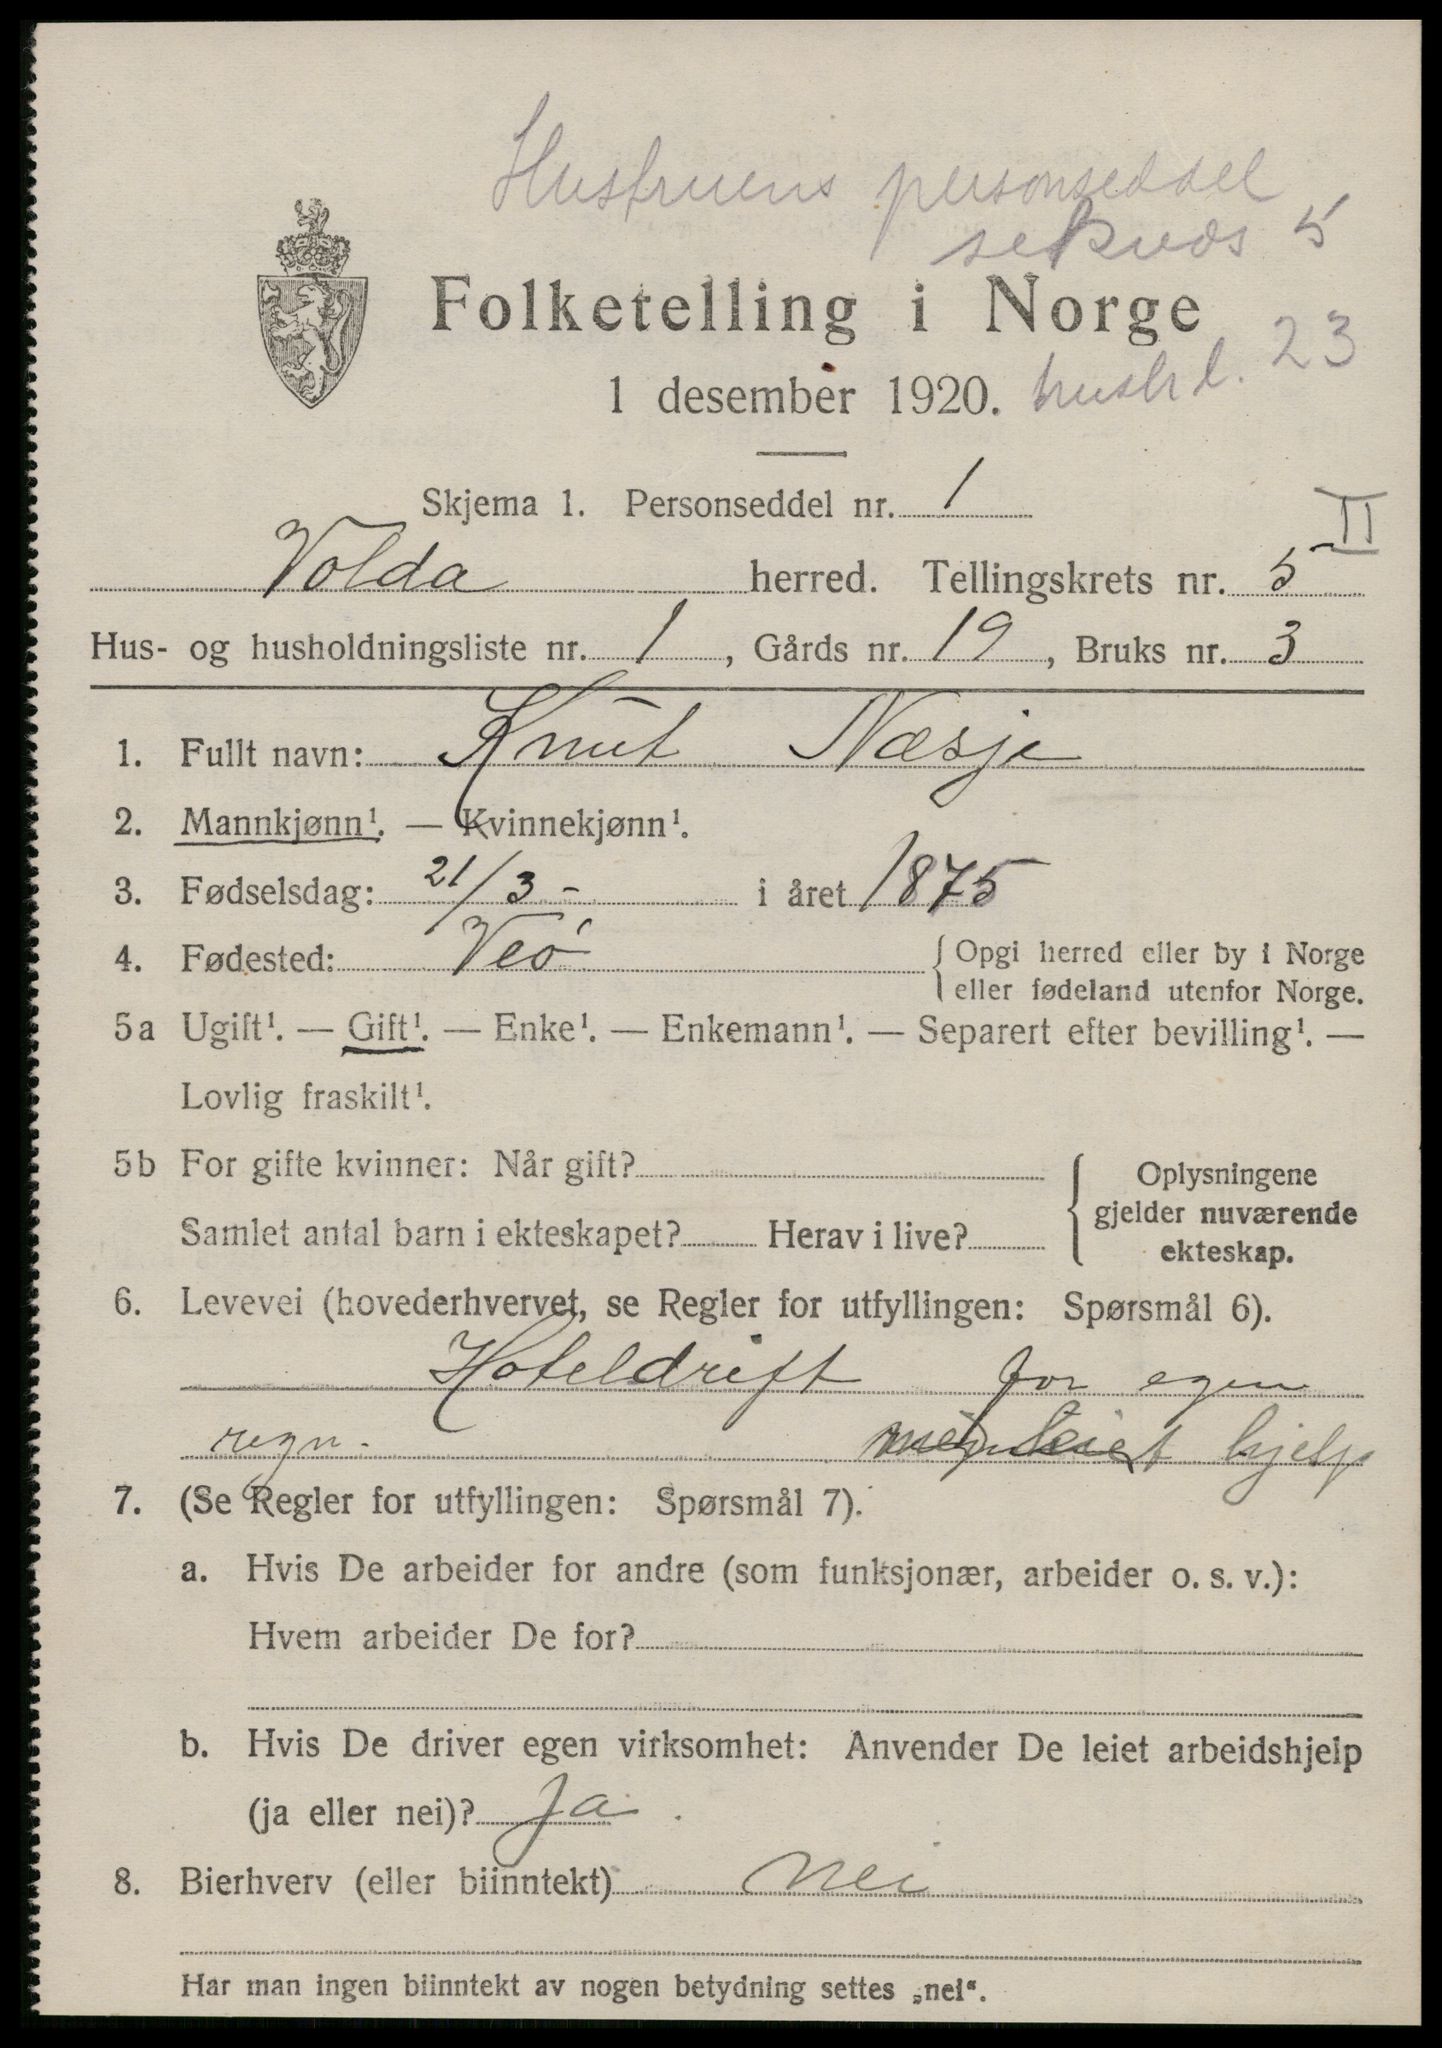 Hustruens personseddel
se kreds 5
Folketelling i Norge
1 desember 1920.
husl. 23
Skjema 1. Personseddel nr. 1
II
Volda herred. Tellingskrets nr. 5
Hus- og husholdningsliste nr. 1, Gårds nr. 19, Bruks nr. 3
1. Fullt navn: Knut Næsje
2. Mannkjønn¹. — Kvinnekjønn¹.
3. Fødselsdag: 21/3 - i året 1875
4. Fødested: Veö { Opgi herred eller by i Norge
eller fødeland utenfor Norge.
5a Ugift¹. — Gift¹. — Enke¹. — Enkemann¹. — Separert efter bevilling¹. —
Lovlig fraskilt¹.
5b For gifte kvinner: Når gift?
Samlet antal barn i ekteskapet? Herav i live?
{ Oplysningene
gjelder nuværende
ekteskap.
6. Levevei (hovederhvervet, se Regler for utfyllingen: Spørsmål 6).
Hoteldrift for egen
regn. leiet hjelp
7. (Se Regler for utfyllingen: Spørsmål 7).
a. Hvis De arbeider for andre (som funksjonær, arbeider o. s. v.):
Hvem arbeider De for?
b. Hvis De driver egen virksomhet: Anvender De leiet arbeidshjelp
(ja eller nei)? Ja.
8. Bierhverv (eller biinntekt) Nei
Har man ingen biinntekt av nogen betydning settes „nei“.